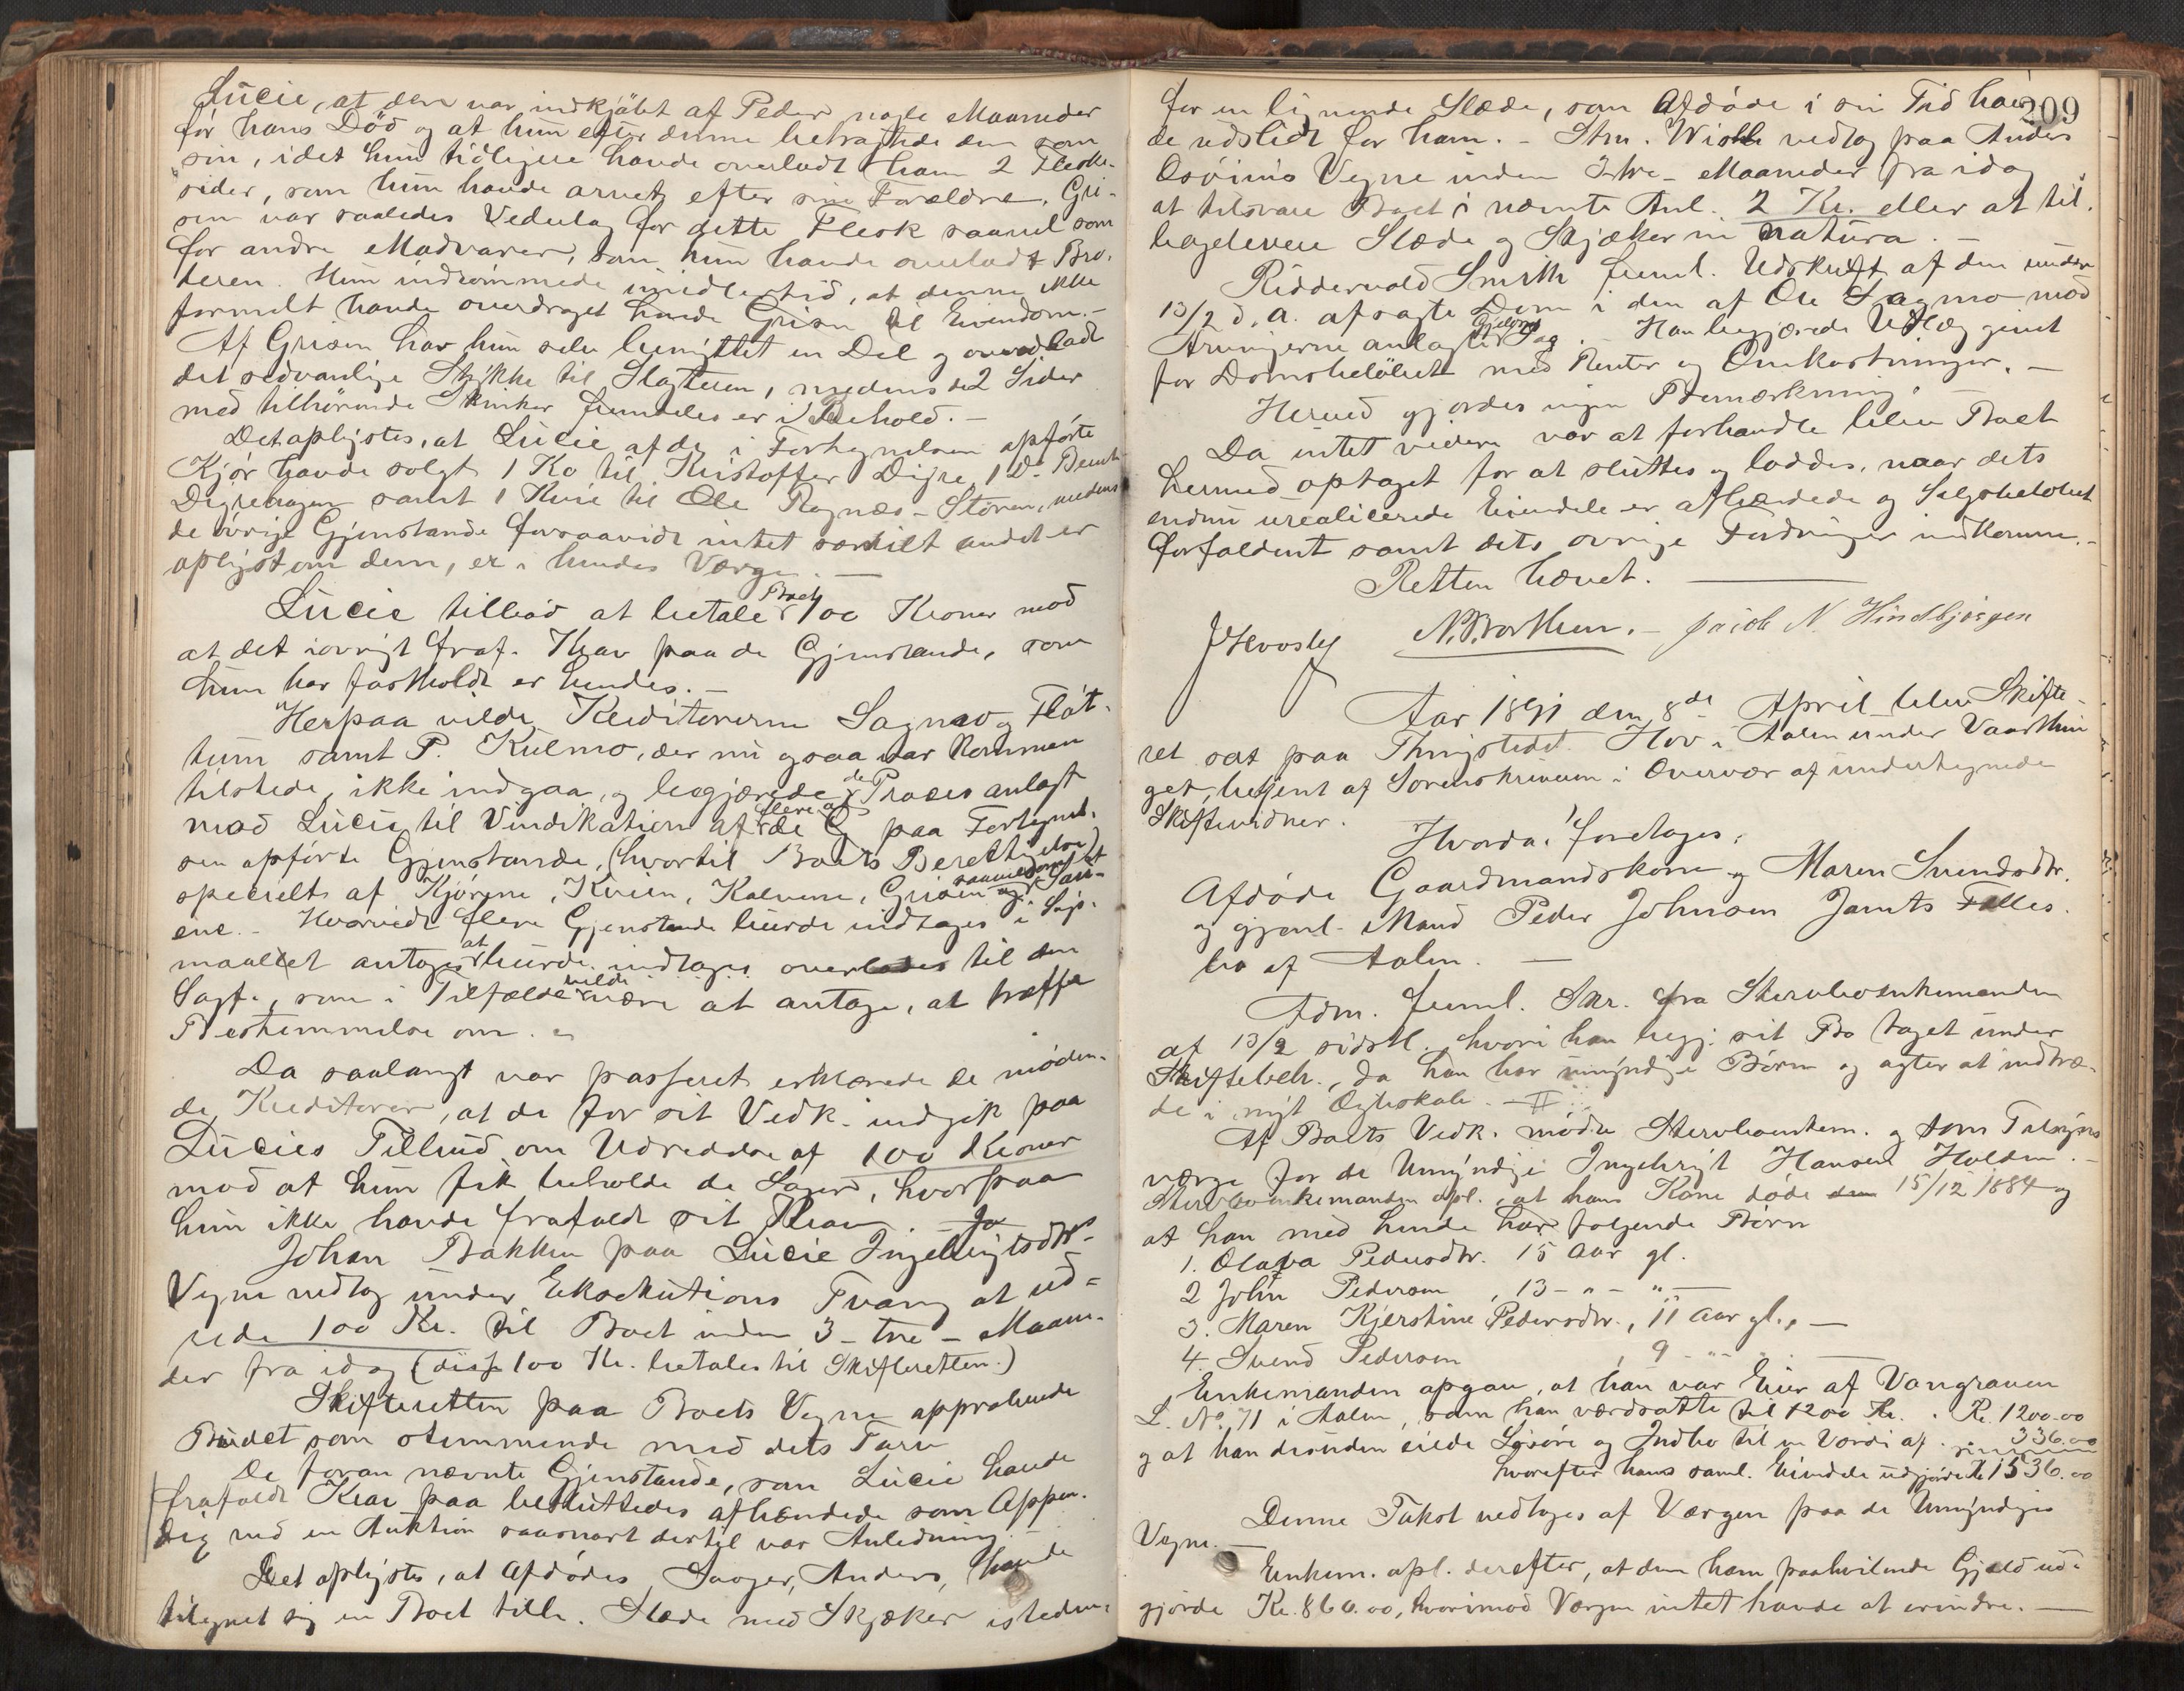 Lucie, at den var indkjøbt af Peder nogle Maaneder
før hans Død og at hun efter denne betragtede den som
sin, idet hun tidligere havde overladt ham 2 Fleske-
sider, som hun havde arvet efter sine Forældre. Gri-
sen var saaledes Vederlag for dette Flesk saavel som
for andre Madvarer, som hun havde overladt Bro-
deren. Hun indrømmede imidlertid, at denne ikke
formelt havde overdraget hende Grisen til Eiendom. -
Af Grisen har hun selv benyttet en Del og overladt
det sedvanlige Stykke til Slagteren, medens de 2 Sider
med tilhørende Skinker fremdeles er i Behold. -
Det oplystes, at Lucie af de i Fortegnelsen opførte
Kjør havde solgt 1 Ko til Kristoffer Digre, 1 Do Bernt
Digrehagen samt 1 Kvie til Ole Rognæs-Støren, medens
de øvrige Gjenstande forsaavidt intet særskilt andet er
oplyst om dem, er i hendes Værge. -
Lucie tilbød at betale Boet 100 Kroner mod
at det iøvrigt fraf. Krav paa de Gjenstande, som
hun har fastholdt er hendes. -
Herpaa vilde Kreditorerne Sagmo og Fløt-
tum samt P. Kulmo, der nu ogsaa var kommen
tilstede, ikke indgaa, og begjærede de Proces anlagt
mod Lucie til Vindikation af flere af de paa Fortegnel-
sen opførte Gjenstande, (hvortil Boets Berettigelse)
specielt af Kjørene, Kvien, Kalvene, Grisen og saavelsom Sau-
ene. - Hvorvidt flere Gjenstande burde indtages i Søgs-
maalet antages at burde indtages overlades til den
Sagf., som i Tilfælde vilde være at antage, at træffe
Bestemmelse om. -
Da saalangt var passeret erklærede de møden-
de Kreditorer, at de for sit Vedk. indgik paa
Lucies Tilbud om Udredelse af 100 Kroner
mod at hun fik beholde de Sager, hvorpaa
hun ikke havde frafaldt sit Krav. - Jo
Johan Bakken paa Lucie Ingebrigtsdtrs
Vegne vedtog under Eksekutions Tvang at ud-
rede 100 Kr. til Boet inden 3 - tre - Maane-
der fra idag (disse 100 Kr. betales til Skifteretten.)
Skifteretten paa Boets Vegne approberede
Budet som stemmende med dets Tarv
De foran nævnte Gjenstande, som Lucie havde
frafaldt Krav paa besluttedes afhændede som Appen-
dix ved en Auktion saasnart dertil var Anledning. -
Det oplystes, at Afdødes Svoger, Anders, havde
tilegnet sig en Boet tilh. Slæde med Skjæker isteden-
209
for en lignende Slæde, som Afdøde i sin Tid hav-
de udslidt for ham. - Stm. Wisth vedtog paa Anders
Osvinds Vegne inden 3 tre - Maaneder fra idag
at tilsvare Boet i nævnte Anl. 2 Kr. eller at til-
bagelevere Slæde og Skjæker in natura. -
Riddervold Smith freml. Udskrift af den under
13/2 d. A. afsagte Dom i den af Ole Sagmo mod
Arvingerne anlagte Gjelds Sag. - Han begjærede Udlæg givet
for Domsbeløbet med Renter og Omkostninger. -
Herved gjordes ingen Bemærkning. -
Da intet videre var at forhandle blev Boet
hermed optaget for at sluttes og loddes, naar dets
endnu urealiserede Eiendele er afhændede og Salgsbeløbet
forfaldent samt dets øvrige Fordringer indkomne. -
Retten hævet. -
J Hvosle N. Borthen. - Jacob N. Hindbjørgen
Aar 1891 den 8de April blev Skifte-
ret sat paa Thingstedet Hov i Aalen under Vaarthin-
get, betjent af Sorenskriveren i Overvær af undertegnede
Skiftevidner.
Hvorda foretoges:
Afdøde Gaardmandskone Maren Svendsdtr.
og gjenl. Mand Peder Johnsen Jamts Fælles-
bo af Aalen. -
Adm. freml. Skr. fra Stervboenkemanden
af 13/2 sidstl. hvori han begj. sit Bo taget under
Skiftebeh., da han har umyndige Børn og agter at indtræ-
de i nyt Ægteskab. -
Af Boets Vedk. mødte Stervboenkem. og som Tilsyns-
værge for de Umyndige Ingebrigt Hansen Holden. -
Stervboenkemanden opl. at hans Kone døde den 15/12 1884 og
at han med hende har følgende Børn
1. Olava Pedersdtr. 15 Aar gl.
2 John Pedersen, 13 - " - " -
3. Maren Kjerstine Pedersdtr., 11 Aar gl., -
4. Svend Pedersen, 9 - " - " -
Enkemanden opgav, at han var Eier af Vangraven
L. No. 71 i Aalen, som han værdsatte til 1200 Kr. . Kr. 1200.00
og at han desuden eiede Løsøre og Indbo til en Værdi af . 336.00
hvorefter hans saml. Eiendele udgjøre Kr 1536.00
Denne Takst vedtoges af Værgen paa de Umyndiges
Vegne. -
Enkem. opl. derefter, at den ham paahvilende Gjæld ud-
gjorde Kr. 860.00, hvorimod Værgen intet havde at erindre. -